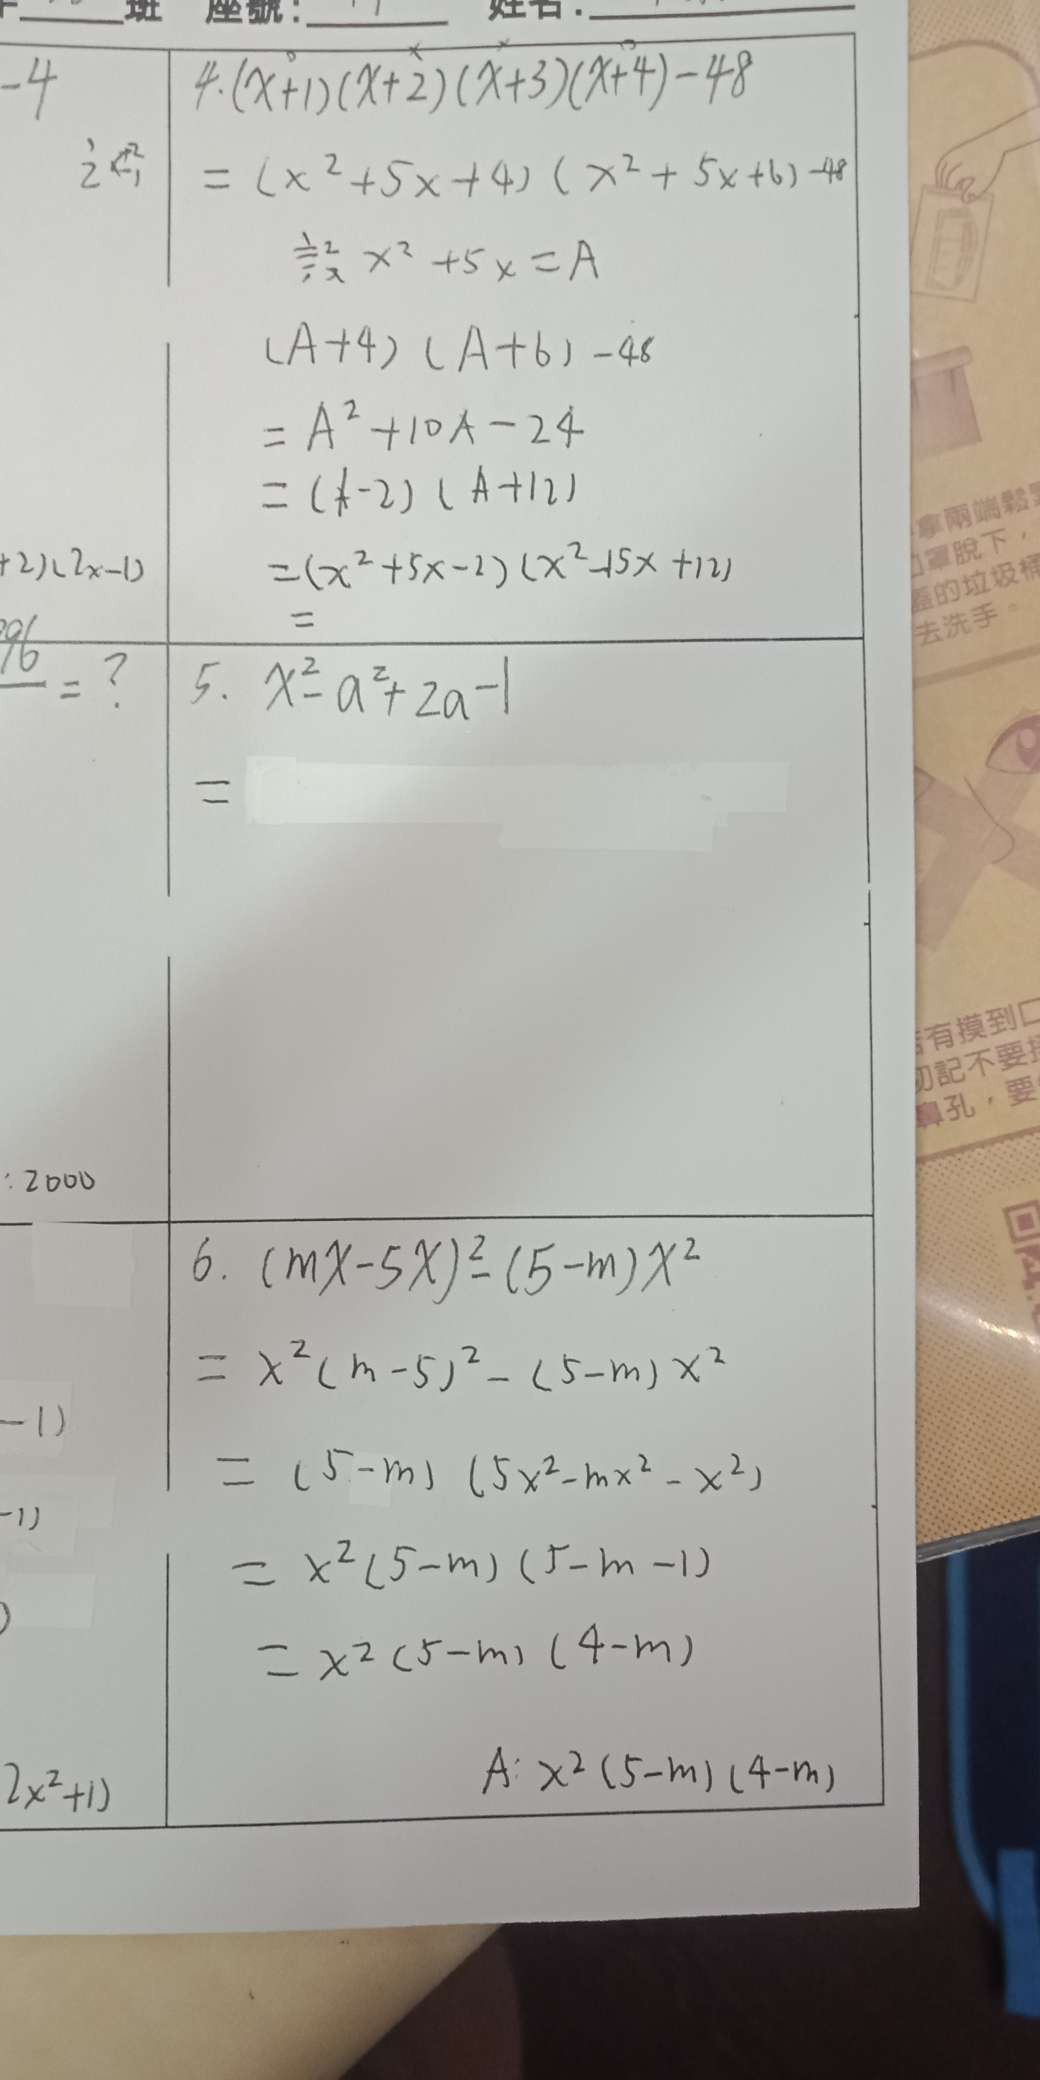 班 座號: 姓名:
-4
+2)(2x-1)
96
= ?
: 2000
-1)
-1)
)
2x²+1)
4. (x+1)(x+2)(x+3)(x+4)-48
= (x²+5x+4)(x²+5x+6)-48
x²+5x=A
(A+4)(A+6)-48
= A²+10A-24
= (A-2)(A+12)
=(x²+5x-2)(x²+5x+12)
=
5. x²-a²+2a-1
=
6. (mx-5x)²-(5-m)x²
= x²(m-5)²-(5-m)x²
= (5-m)(5x²-mx²-x²)
= x²(5-m)(5-m-1)
= x²(5-m)(4-m)
A: x²(5-m)(4-m)
拿兩端鬆
口罩脫下，
蓋的垃圾桶
去洗手。
有摸到口
切記不要
鼻孔，要